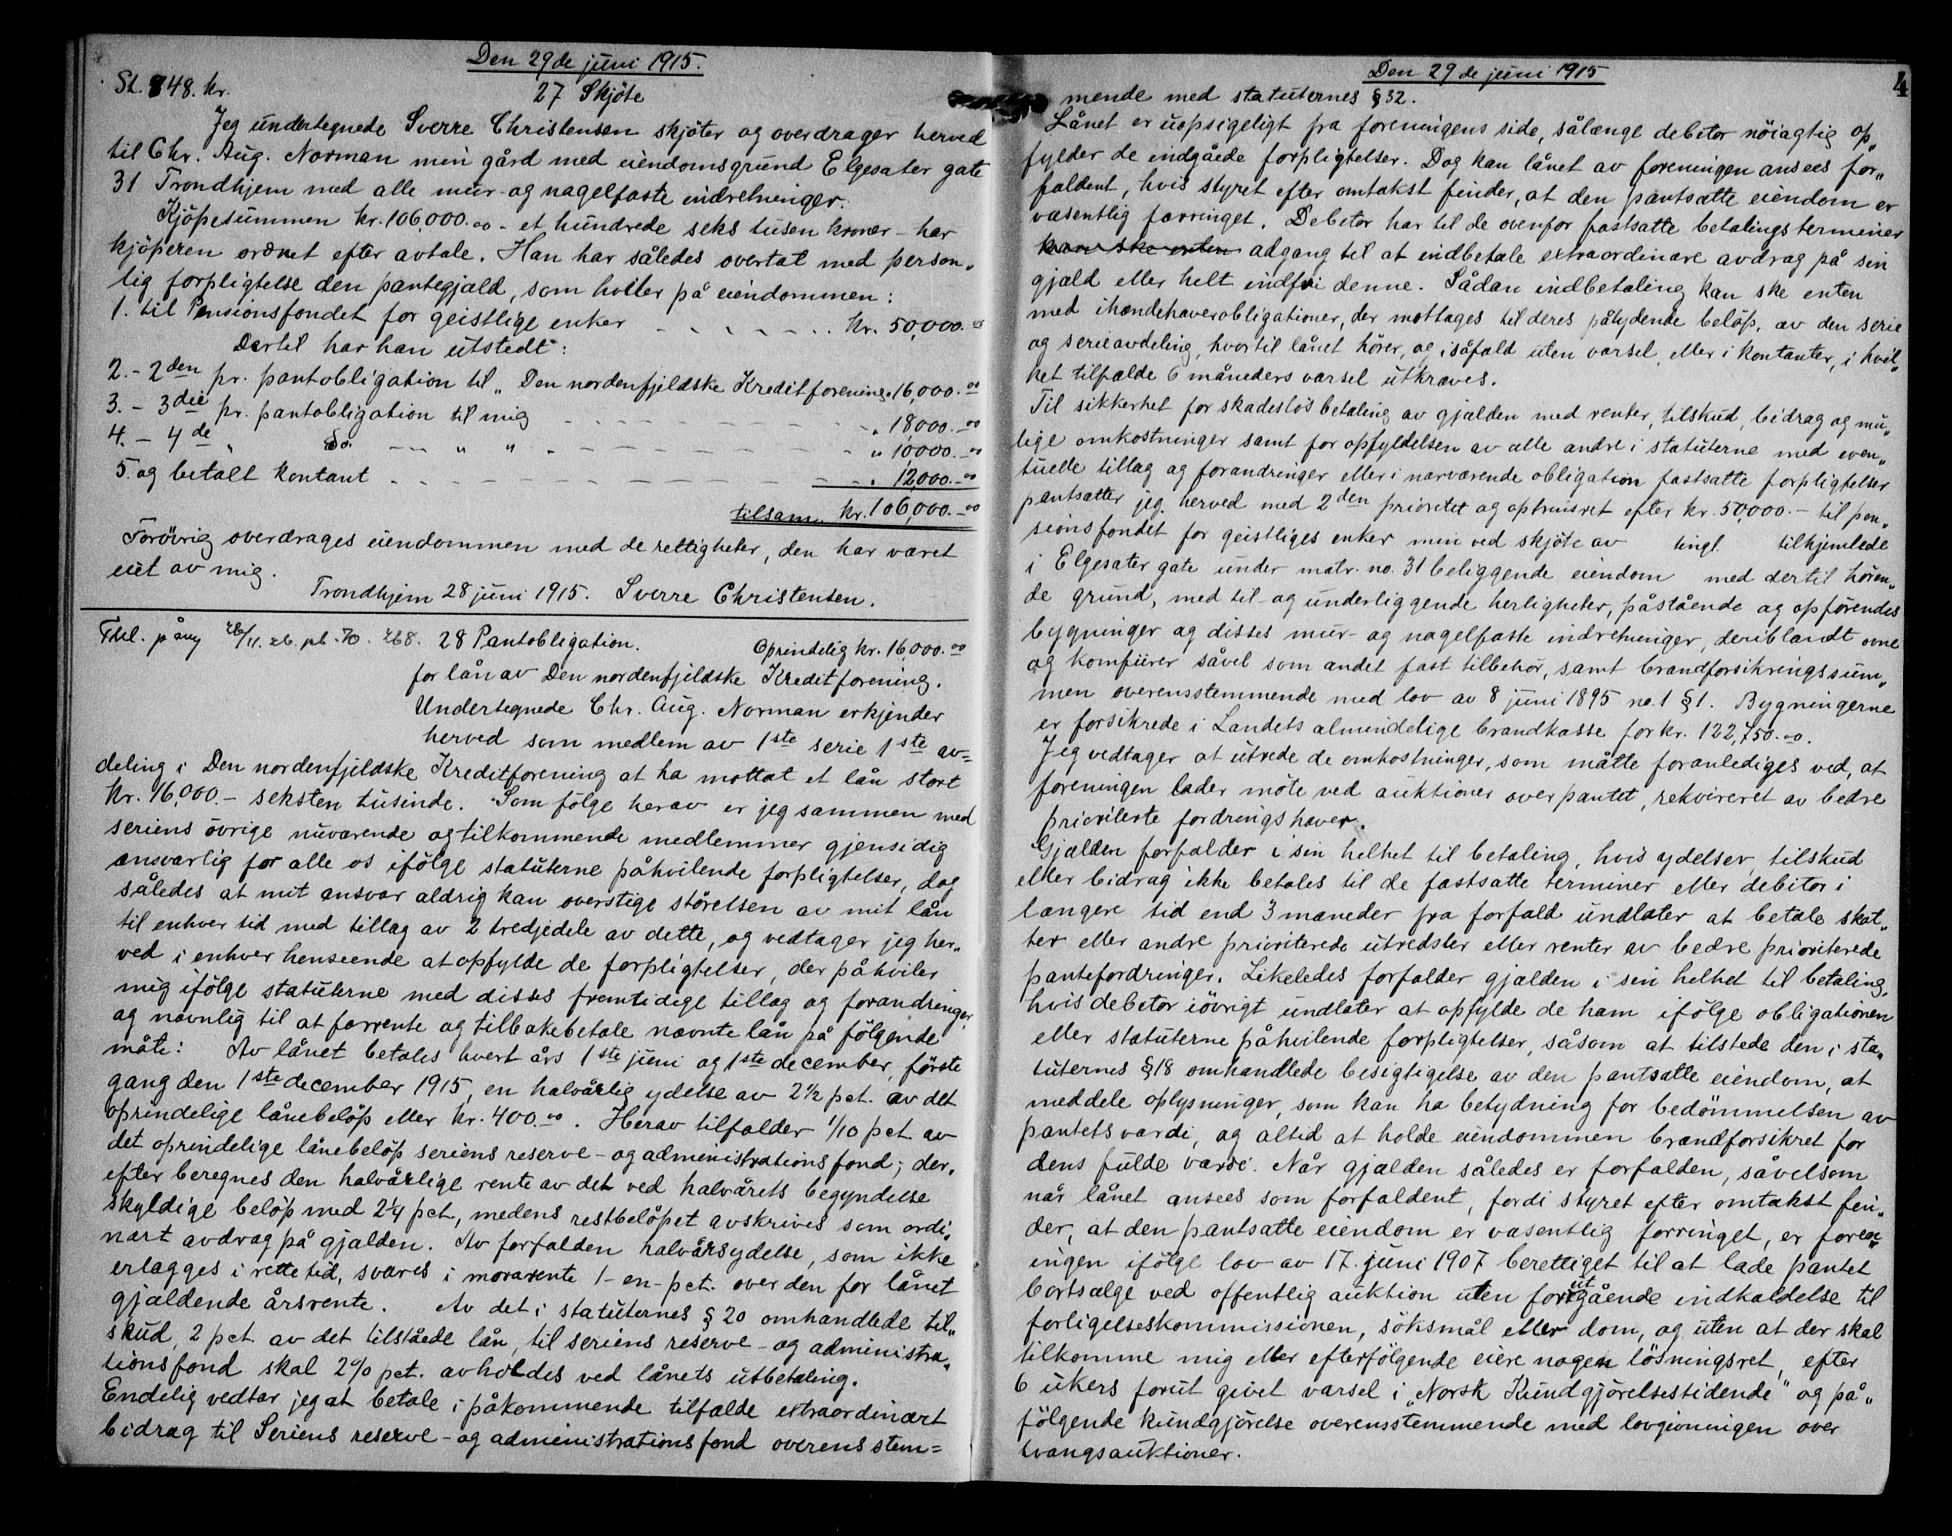 Den 29de juni 1915.
St. 848. kr.
27 Skjöte
Jeg undertegnede Sverre Christensen skjöter og overdrager herved
til Chr. Aug. Norman min gård med eiendomsgrund Elgesæter gate
31 Trondhjem med alle mur- og nagelfaste indretninger.
Kjöpesummen kr. 106,000.00 - et hundrede seks tusen kroner - har
kjöperen ordnet efter avtale. Han har således overtat med person„
lig forpligtelse den pantegjæld, som hviler på eiendommen:
1. til Pensionsfondet for geistlige enker - - - - - - . . kr. 50,000.00
Dertil har han utstedt:
2. - 2den pr. pantobligation til „Den nordenfjeldske Kreditforening „ 16,000.00
3. - 3die pr. pantobligation til mig - - - - - - - - - „ 18000.-00
4. - 4de „ do. - - „ „ „ - - - - - - - - „ 10000.-00
5. og betalt kontant - - - - - - - - - - - - „ 12,000.-00
tilsam. kr. 106,000.-00
Forövrig overdrages eiendommen med de rettigheter, den har været
eiet av mig.
Trondhjem 28 juni 1915. Sverre Christensen.
Thl. på ny 26/11. 26. pb. 70. 268. 28 Pantobligation. Oprindelig kr. 16,000.00
for lån av Den nordenfjeldske Kreditforening.
Undertegnede Chr. Aug. Norman erkjender
herved som medlem av 1ste serie 1ste av=
deling i Den nordenfjeldske Kreditforening at ha mottat et lån stort
kr. 16,000.- seksten tusinde. Som fölge herav er jeg sammen med
seriens övrige nuværende og tilkommende medlemmer gjensidig
ansvarlig for alle os ifölge statuterne påhvilende forpligtelser, dog
således at mit ansvar aldrig kan overstige störelsen av mit lån
til enhver tid med tillæg av 2 tredjedele av dette, og vedtager jeg her„
ved i enhver henseende at opfylde de forpligtelser, der påhviler
mig ifölge statuterne med disses fremtidige tillæg og forandringer,
og navnlig til at forrente og tilbakebetale nævnte lån på fölgende
måte: Av lånet betales hvert års 1ste juni og 1ste december, förste
gang den 1ste december 1915, en halvårlig ydelse av 2½ pct. av det
oprindelige lånebelöp eller kr. 400.00. Herav tilfalder 1/10 pct. av
det oprindelige lånebelöp seriens reserve- og administrationsfond; der„
efter beregnes den halvårlige rente av det ved halvårets begyndelse
skyldige belöp med 2¼ pct., medens restbelöpet avskrives som ordi„
nært avdrag på gjælden. Av forfalden halvårsydelse, som ikke
erlægges i rette tid, svares i morarente 1-en-pct. over den for lånet
gjældende årsrente. Av det i statuternes § 20 omhandlede til„
skud, 2 pct. av det tilståede lån, til seriens reserve- og administra„
tionsfond skal 2% pct. avholdes ved lånets utbetaling.
Endelig vedtar jeg at betale i påkommende tilfælde extraordinært
bidrag til Seriens reserve- og administrationsfond overensstem=
Den 29de juni 1915
4
mende med statuternes § 32.
Lånet er uopsigeligt fra foreningens side, sålænge debitor nöiagtig op„
fylder de indgåede forpligtelser. Dog kan lånet av foreningen ansees for„
faldent, hvis styret efter omtakst finder, at den pantsatte eiendom er
væsentlig forringet. Debitor har til de ovenfor fastsatte betalingsterminer
kan ske enten adgang til at indbetale extraordinære avdrag på sin
gjæld eller helt indfri denne. Sådan indbetaling kan ske enten
med ihændehaverobligationer, der mottages til deres pålydende belöp, av den serie
og serieavdeling, hvortil lånet hörer, og isåfald uten varsel, eller i kontanter, i hvil„
ket tilfælde 6 måneders varsel utkræves.
Til sikkerhet for skadeslös betaling av gjælden med renter, tilskud, bidrag og mu„
lige omkostninger samt for opfyldelsen av alle andre i statuterne med even„
tuelle tillæg og forandringer eller i nærværende obligation fastsatte forpligtelser
pantsætter jeg herved med 2den prioritet og optrinsret efter kr. 50,000.- til pen„
sionsfondet for geistliges enker min ved skjöte av tingl. tilhjemlede
i Elgesæter gate under matr. no. 31 beliggende eiendom med dertil hören„
de grund, med til- og underliggende herligheter, påstående og opförendes
bygninger og disses mur- og nagelfaste indretninger, deriblandt ovne
og komfürer såvel som andet fast tilbehör, samt brandforsikringssum„
men overensstemmende med lov av 8 juni 1895 no. 1 § 1. Bygningerne
er forsikrede i Landets almindelige brandkasse for kr. 122,750.00.
Jeg vedtager at utrede de omkostninger, som måtte foranlediges ved, at
foreningen lader möte ved auktioner over pantet, rekvireret av bedre
prioriterte fordringshaver.
Gjælden forfalder i sin helhet til betaling, hvis ydelser, tilskud
eller bidrag ikke betales til de fastsatte terminer eller debitor i
længere tid end 3 maneder fra forfald undlater at betale skat„
ter eller andre prioriterede utredsler eller renter av bedre prioriterede
pantefordringer. Likeledes forfalder gjælden i sin helhet til betaling,
hvis debitor iövrigt undlater at opfylde de ham ifölge obligationen
eller statuterne påhvilende forpligtelser, såsom at tilstede den i sta„
tuternes § 18 omhandlede besigtigelse av den pantsatte eiendom, at
meddele oplysninger, som kan ha betydning for bedömmelsen av
pantets værdi, og altid at holde eiendommen brandforsikret for
dens fulde værdi. Når gjælden således er forfalden, såvelsom
når lånet ansees som forfaldent, fordi styret efter omtakst fin„
der, at den pantsatte eiendom er væsentlig forringet, er foren„
ingen ifölge lov av 17. juni 1907 berettiget til at lade pantet
bortsælge ved offentlig auktion uten forutgående indkaldelse til
forligelseskommissionen, söksmål eller dom, og uten at der skal
tilkomme mig eller efterfölgende eiere nogen lösningsret, efter
6 ukers forut givet varsel i „Norsk Kundgjörelsestidende" og på„
fölgende kundgjörelse overensstemmende med lovgivningen over
tvangsauktioner.